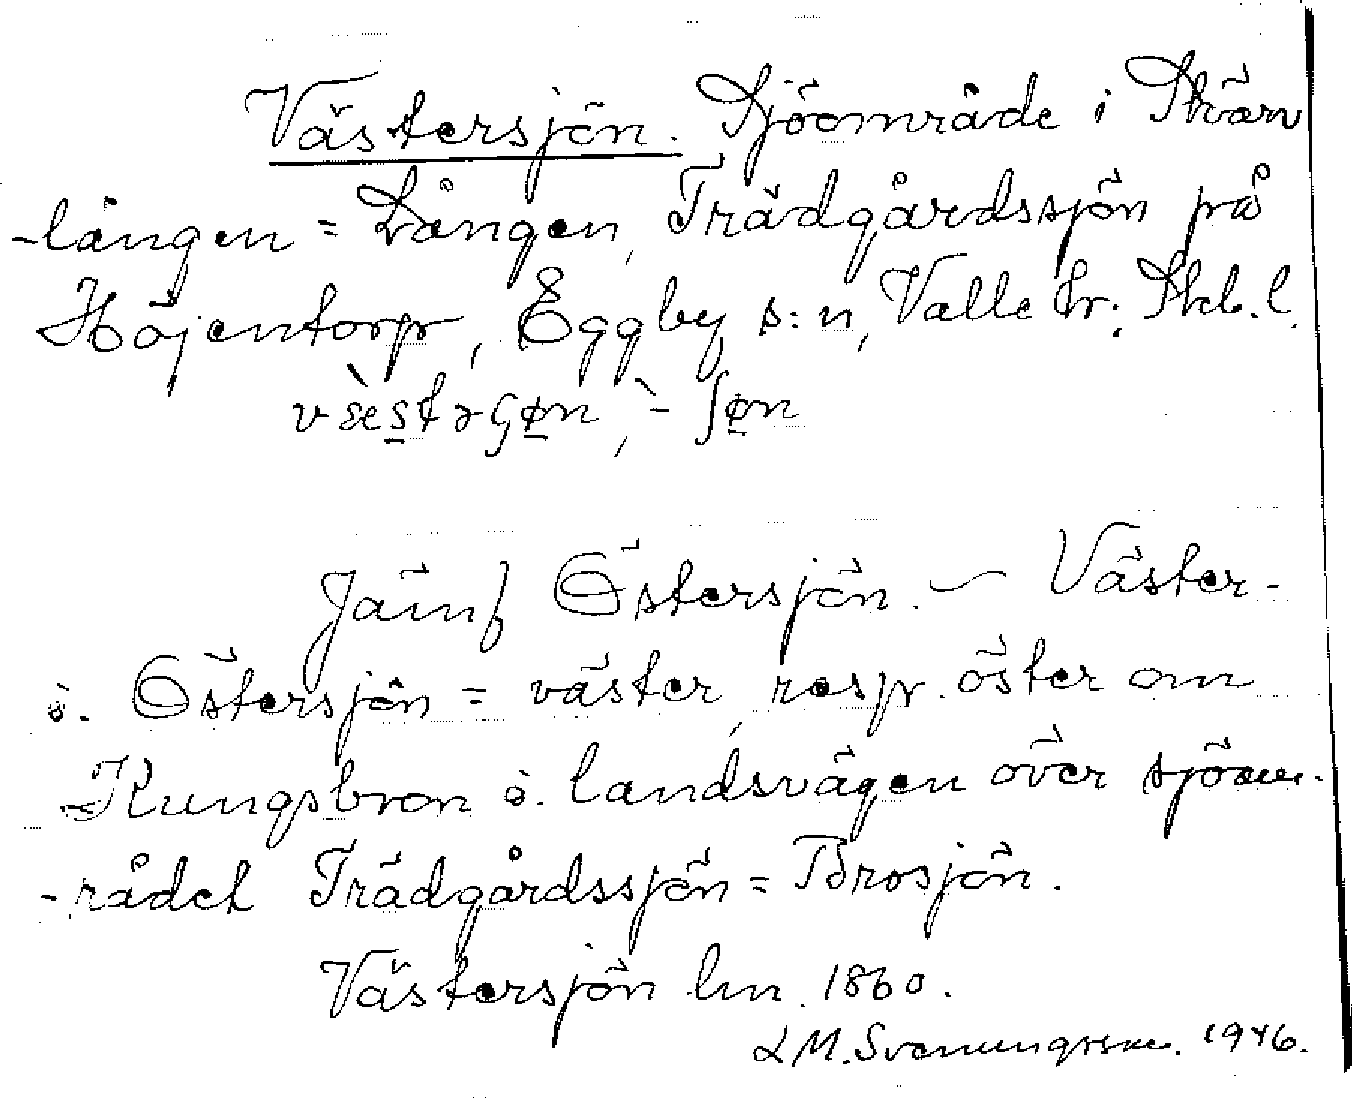 Västersjön. Sjöområde i Skärv
-lången = Lången, Trädgårdssjön på
Höjentorp, Eggby s:n, Valle hr. Skb. l.
væ̀stərʃøn, -ʃøn
Jämf Östersjön. — Väster-
o. Östersjön = väster, resp. öster om
Kungsbron o. landsvägen över sjöom-
-rådet Trädgårdssjön = Brosjön.
Västersjön lm. 1860.
L M. Svenungsson. 1946.